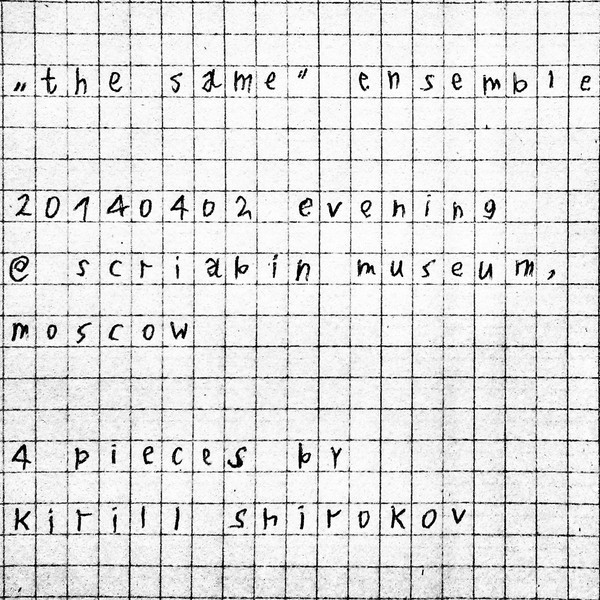 „the same“ ensemble
20140402 evening
@ scriabin museum,
moscow
4 pieces by
kirill shirokov